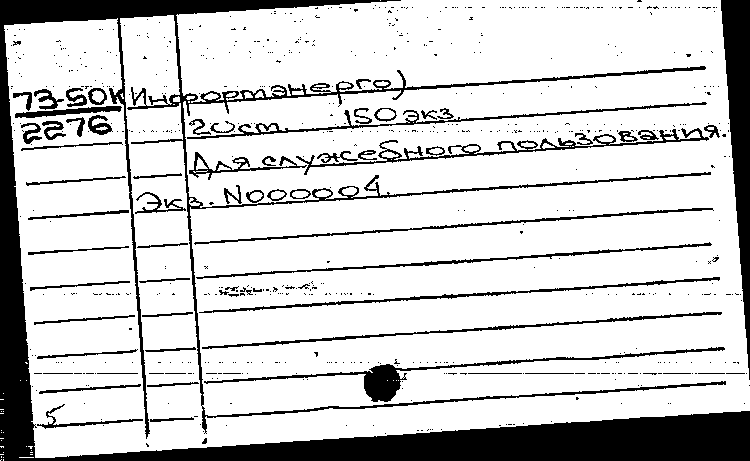 73-50К Информэнерго)
2276
20см. 150 экз.
Для служебного пользования.
Экз. N000004.
5